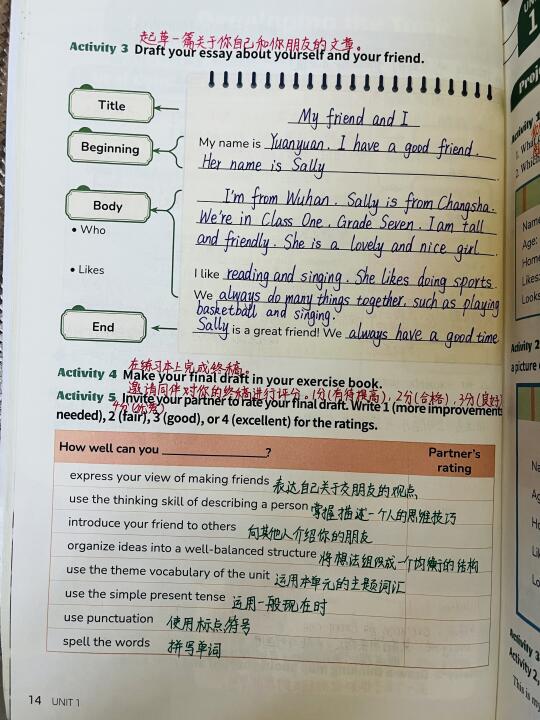 起草一篇关于你自己和你朋友的文章。
Activity 3 Draft your essay about yourself and your friend.
Title
My friend and I
Beginning
My name is Yuanyuan. I have a good friend.
Her name is Sally
Body
I'm from Wuhan. Sally is from Changsha.
• Who
We're in Class One, Grade Seven. I am tall
and friendly. She is a lovely and nice girl
• Likes
I like reading and singing. She likes doing sports.
We always do many things together, such as playing
basketball and singing.
End
Sally is a great friend! We always have a good time
在练习本上完成终稿。
Activity 4 Make your final draft in your exercise book.
邀请同伴对你的终稿进行评分。1分(有待提高), 2分(合格), 3分(良好)
4分(优秀)
Activity 5 Invite your partner to rate your final draft. Write 1 (more improvement
needed), 2 (fair), 3 (good), or 4 (excellent) for the ratings.
How well can you ?
Partner's
rating
express your view of making friends 表达自己关于交朋友的观点
use the thinking skill of describing a person 掌握描述一个人的思维技巧
introduce your friend to others 向其他人介绍你的朋友
organize ideas into a well-balanced structure 将想法组成一个均衡的结构
use the theme vocabulary of the unit 运用本单元的主题词汇
use the simple present tense 运用一般现在时
use punctuation 使用标点符号
spell the words 拼写单词
14 UNIT 1
1
Activity
1. Wha
2. Which
Name
Age:
Home
Likes:
Looks
Activity 2
a picture
Na
Ag
Ho
Lik
Lo
Activity 3
Activity 2,
This is my